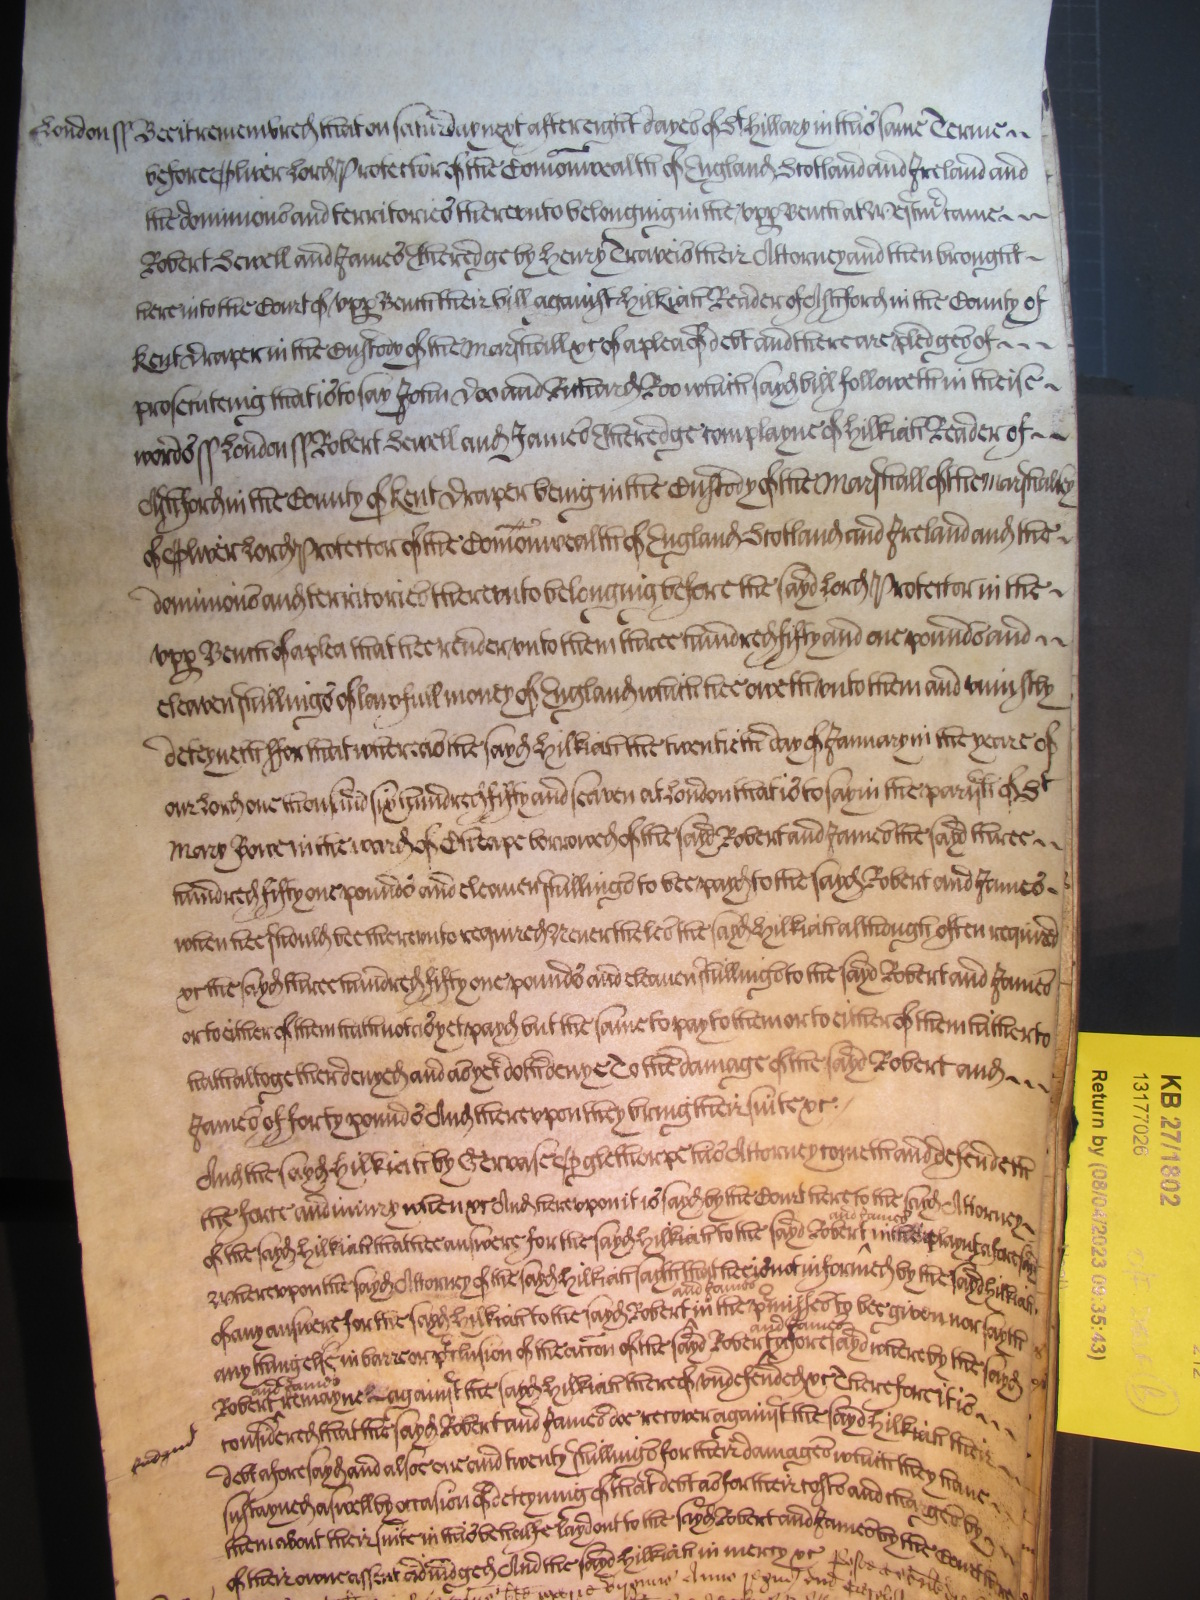 London ss Bee it remembred that on saturday next after eight dayes of St Hillary in this same Terme
before Oliver Lord Protector of the Comonwealth of England Scotland and Ireland and
the dominions and territories therevnto belonging in the vpp Bench at Westmr came
Robert Sewell and James Etheredge by Henry Travers their Attorney and then brought
here into the Court of vpp Bench their bill against Hilkiah Reader of Ashford in the County of
Kent Draper in the Custody of the Marshall &c of a plea of debt and there are pledges of
prosecuteing that is to say John Doo and Richard Roo which sayd bill followeth in theise
words ss London ss Robert Sewell and James Etheredge complayne of Hilkiah Reader of
Ashford in the County of Kent Draper being in the Custody of the Marshall of the Marshalsey
of Oliver Lord Protector of the Comonwealth of England Scotland and Ireland and the
dominions and territories therevnto belonging before the sayd Lord Protector in the
vpp Bench of a plea that hee render vnto them three hundred fifty and one pounds and
eleaven shillings of lawfull money of England which hee oweth vnto them and vniustly
deteyneth ffor that whereas the sayd Hilkiah the twentieth day of January in the yeare of
our Lord one thousand six hundred fifty and seaven at London that is to say in the parish of St
Mary Bowe in the ward of Cheape borrowed of the sayd Robert and James the sayd three
hundred fifty one pounds and eleaven shillings to bee payd to the sayd Robert and James
when hee should bee therevnto required Neverthelesse the sayd Hilkiah although often required
&c the sayd three hundred fifty one pounds and eleaven shillings to the sayd Robert and James
or to either of them hath not as yet payd but the same to pay to them or to either of them hitherto
hath altogether denyed and as yet doth denye To the damage of the sayd Robert and
James of forty pounds And therevpon they bring their suite &c
And the sayd Hilkiah by Gervase Oglethorpe his Attorney cometh and defendeth
the force and iniury when &c And therevpon it is sayd by the Court here to the sayd Attorney
of the sayd Hilkiah that hee answere for the sayd Hilkiah to the sayd Robert and James in the playnt aforesayd
Wherevpon the sayd Attorney of the sayd Hilkiah sayth that hee is not informed by the sayd Hilkiah
of any answere for the sayd Hilkiah to the sayd Robert and James in the pmisses to bee given nor sayth
any thing else in barre or pclusion of the accon of the sayd Robert and James aforesayd whereby the sayd
Robert and James remayne against the sayd Hilkiah thereof vndefended &c Therefore it is
considered that the sayd Robert and James doe recover against the sayd Hilkiah their
debt aforesayd and alsoe one and twenty shillings for their damages which they have
sustayned aswell by occasion of deteyning of that debt as for their costs and charges by
them about their suite in this behalfe layd out to the sayd Robert and James by the Court here
of their owne assent adiudged And the sayd Hilkiah in mercy &c
Judgmt
KB 27/1802
13177026
Return by (08/04/2023 09:35:43)